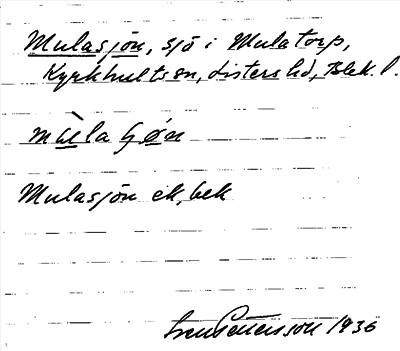 Mulasjön, sjö i Mulatorp,
Kyrkhults sn, Listers hd, Blek. l.
mùla ʃøn
Mulasjön ek, bek
Sven Benson 1936